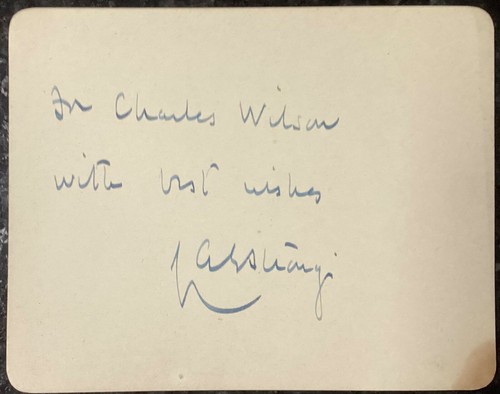 For Charles Wilson
with best wishes